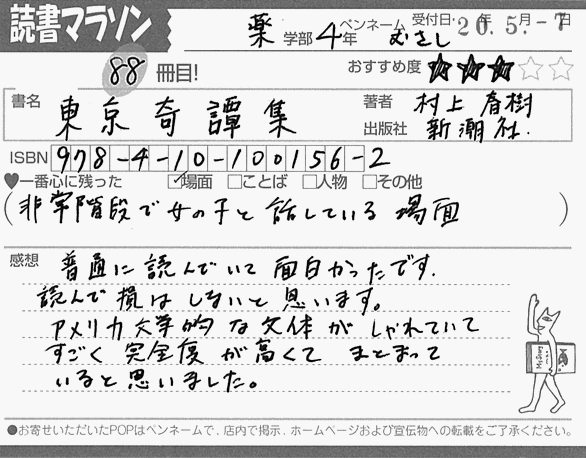 読書マラソン
薬学部4年 ペンネーム むさし 受付日・20年5.月-7日
88冊目! おすすめ度 ★★★☆☆
書名 東京奇譚集 著者 村上春樹
出版社 新潮社.
ISBN 978-4-10-100156-2
♥一番心に残った ☑場面 □ことば □人物 □その他
(非常階段で女の子と話している場面)
感想 普通に読んでいて面白かったです.
読んで損はしないと思います。
アメリカ文学的な文体がしゃれていて
すごく完全度が高くてまとまって
いると思いました。
●お寄せいただいたPOPはペンネームで、店内で掲示、ホームページおよび宣伝物への転載をご了承ください。